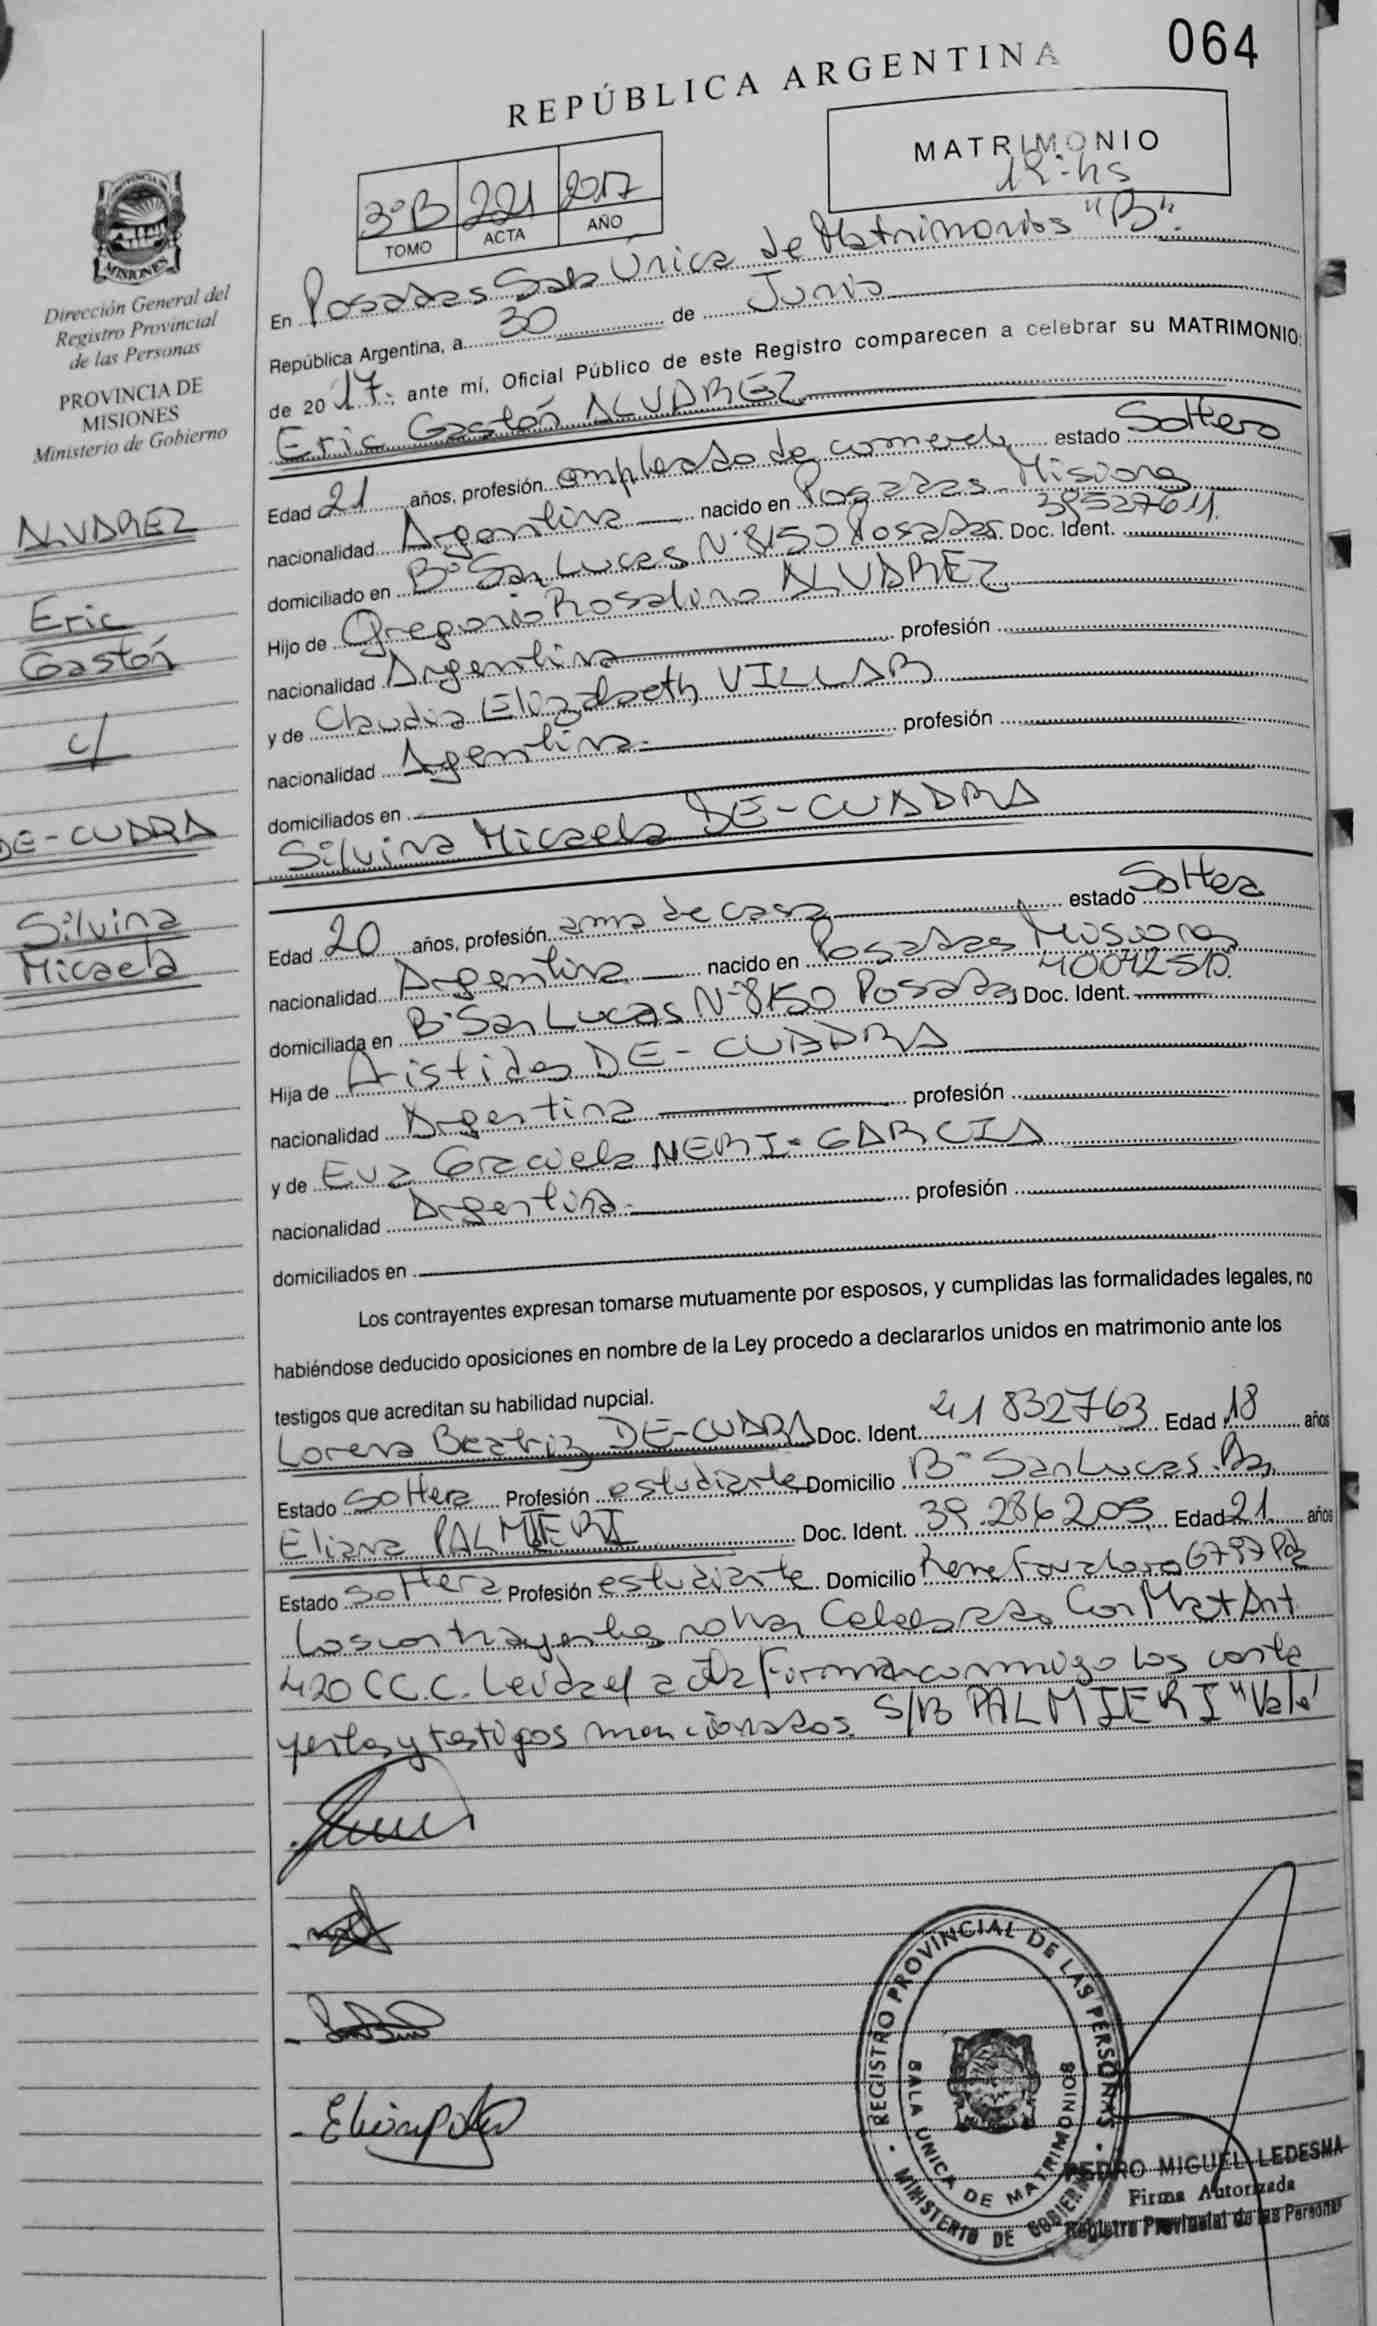 064
REPÚBLICA ARGENTINA
MATRIMONIO
12-hs
3ºB 221 2017
TOMO ACTA AÑO
MISIONES
Dirección General del
Registro Provincial
de las Personas
PROVINCIA DE
MISIONES
Ministerio de Gobierno
ALVAREZ
Eric
Gastón
c/
DE-CUADRA
Silvina
Micaela
En Posadas Sala Única de Matrimonios "B".
República Argentina, a 30 de Junio
de 2017, ante mí, Oficial Público de este Registro comparecen a celebrar su MATRIMONIO:
Eric Gastón ALVAREZ
Edad 21 años, profesión empleado de comercio estado Soltero
nacionalidad Argentina nacido en Posadas Misiones
domiciliado en Bº San Lucas Nº 8150 Posadas Doc. Ident.
Hijo de Gregorio Rosalino ALVAREZ
nacionalidad Argentina profesión
y de Claudia Elizabeth VILLAR
nacionalidad Argentina profesión
domiciliados en
Silvina Micaela DE-CUADRA
Edad 20 años, profesión ama de casa estado Soltera
nacionalidad Argentina nacido en Posadas Misiones
domiciliada en Bº San Lucas Nº 8150 Posadas Doc. Ident.
Hija de Aristides DE-CUADRA
nacionalidad Argentina profesión
y de Eva Graciela NERI-GARCIA
nacionalidad Argentina profesión
domiciliados en
Los contrayentes expresan tomarse mutuamente por esposos, y cumplidas las formalidades legales, no
habiéndose deducido oposiciones en nombre de la Ley procedo a declararlos unidos en matrimonio ante los
testigos que acreditan su habilidad nupcial.
Lorena Beatriz DE-CUADRA Doc. Ident. 41832763 Edad 18 años
Estado Soltera Profesión estudiante Domicilio Bº San Lucas
Eliana PALMIERI Doc. Ident. 39.286205 Edad 21 años
Estado Soltera Profesión estudiante Domicilio Rene Favaloro 6797
Los contrayentes no han Celebrado Con Mat Art
420 CC.C. Leída el acta Forman conmigo los contra
yentes y testigos mencionados. S/B PALMIERI "Vale"
REGISTRO PROVINCIAL DE LAS PERSONAS
SALA UNICA DE MATRIMONIOS
MINISTERIO DE GOBIERNO
PEDRO MIGUEL LEDESMA
Firma Autorizada
Registro Provincial de las Personas